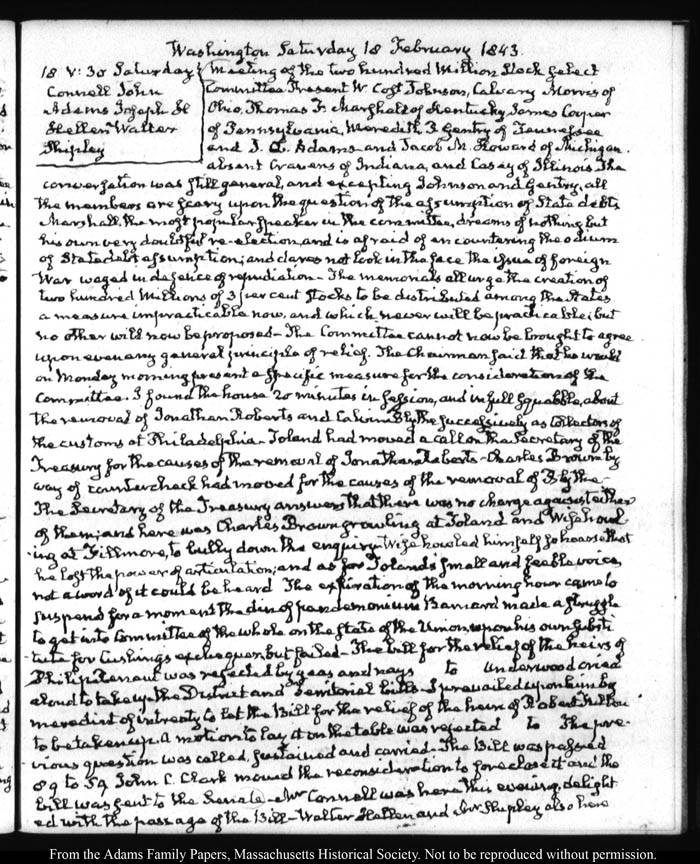 Washington Saturday 18 February 1843.
18 V: 30 Saturday
Connell John
Adams Joseph H
Hellen Walter
Shipley
Meeting of the two hundred Million Stock Select
Committee Present W. Cost Johnson, Calvary Morris of
Ohio, Thomas F. Marshall of Kentucky, James Cooper
of Pennsylvania, Meredith P. Gentry of Tennessee
and J. Q. Adams and Jacob M. Howard of Michigan.
absent Cravens of Indiana, and Casey of Illinois. The
conversation was still general, and excepting Johnson and Gentry, all
the members are scary upon the question of the assumption of State debts
Marshall, the most popular speaker in the committee, dreams of nothing but
his own very doubtful re-election, and is afraid of encountering the odium
of State debt assumption; and dares not look in the face the issue of foreign
War waged in defence of repudiation - The memorials all urge the creation of
two hundred Millions of 3 per cent Stocks to be distributed among the States
a measure impracticable now, and which never will be practicable; but
no other will now be proposed - The Committee cannot now be brought to agree
upon even any general principle of relief. The Chairman said that he would
on Monday morning present a specific measure for the consideration of the
Committee. I found the house 20 minutes in Session, and in full squabble, about
the removal of Jonathan Roberts and Calvin Blythe successively as Collectors of
the customs at Philadelphia - Toland had moved a call on the Secretary of the
Treasury for the causes of the removal of Jonathan Roberts - Charles Brown by
way of countercheck had moved for the causes of the removal of Blythe -
The Secretary of the Treasury answers that there was no charge against either
of them; and here was Charles Brown growling at Toland and Wise howl-
ing at Fillmore, to bully down the enquiry. Wise howled himself so hoarse that
he lost the power of articulation; and as for Toland's small and feeble voice,
not a word of it could be heard The expiration of the morning hour came to
suspend for a moment the din of pandemonium Barnard made a struggle
to get into Committee of the whole on the state of the Union, upon his own substi
tute for Cushing's exchequer, but failed - The bill for the relief of the heirs of
Philip Renaut was rejected by yeas and nays to Underwood cried
aloud to take up the District and Territorial bills - I prevailed upon him by
mere dint of intreaty to let the Bill for the relief of the heirs of Robert Fulton
to be taken up. A motion to lay it on the table was rejected to The pre-
vious question was called, sustained and carried - The Bill was passed
89 to 59 John C. Clark moved the reconsideration to foreclose it and the
bill was sent to the Senate - Mr Connell was here this evening, delight
ed with the passage of the Bill - Walter Hellen and Mr Shepley also here
From the Adams Family Papers, Massachusetts Historical Society. Not to be reproduced without permission.